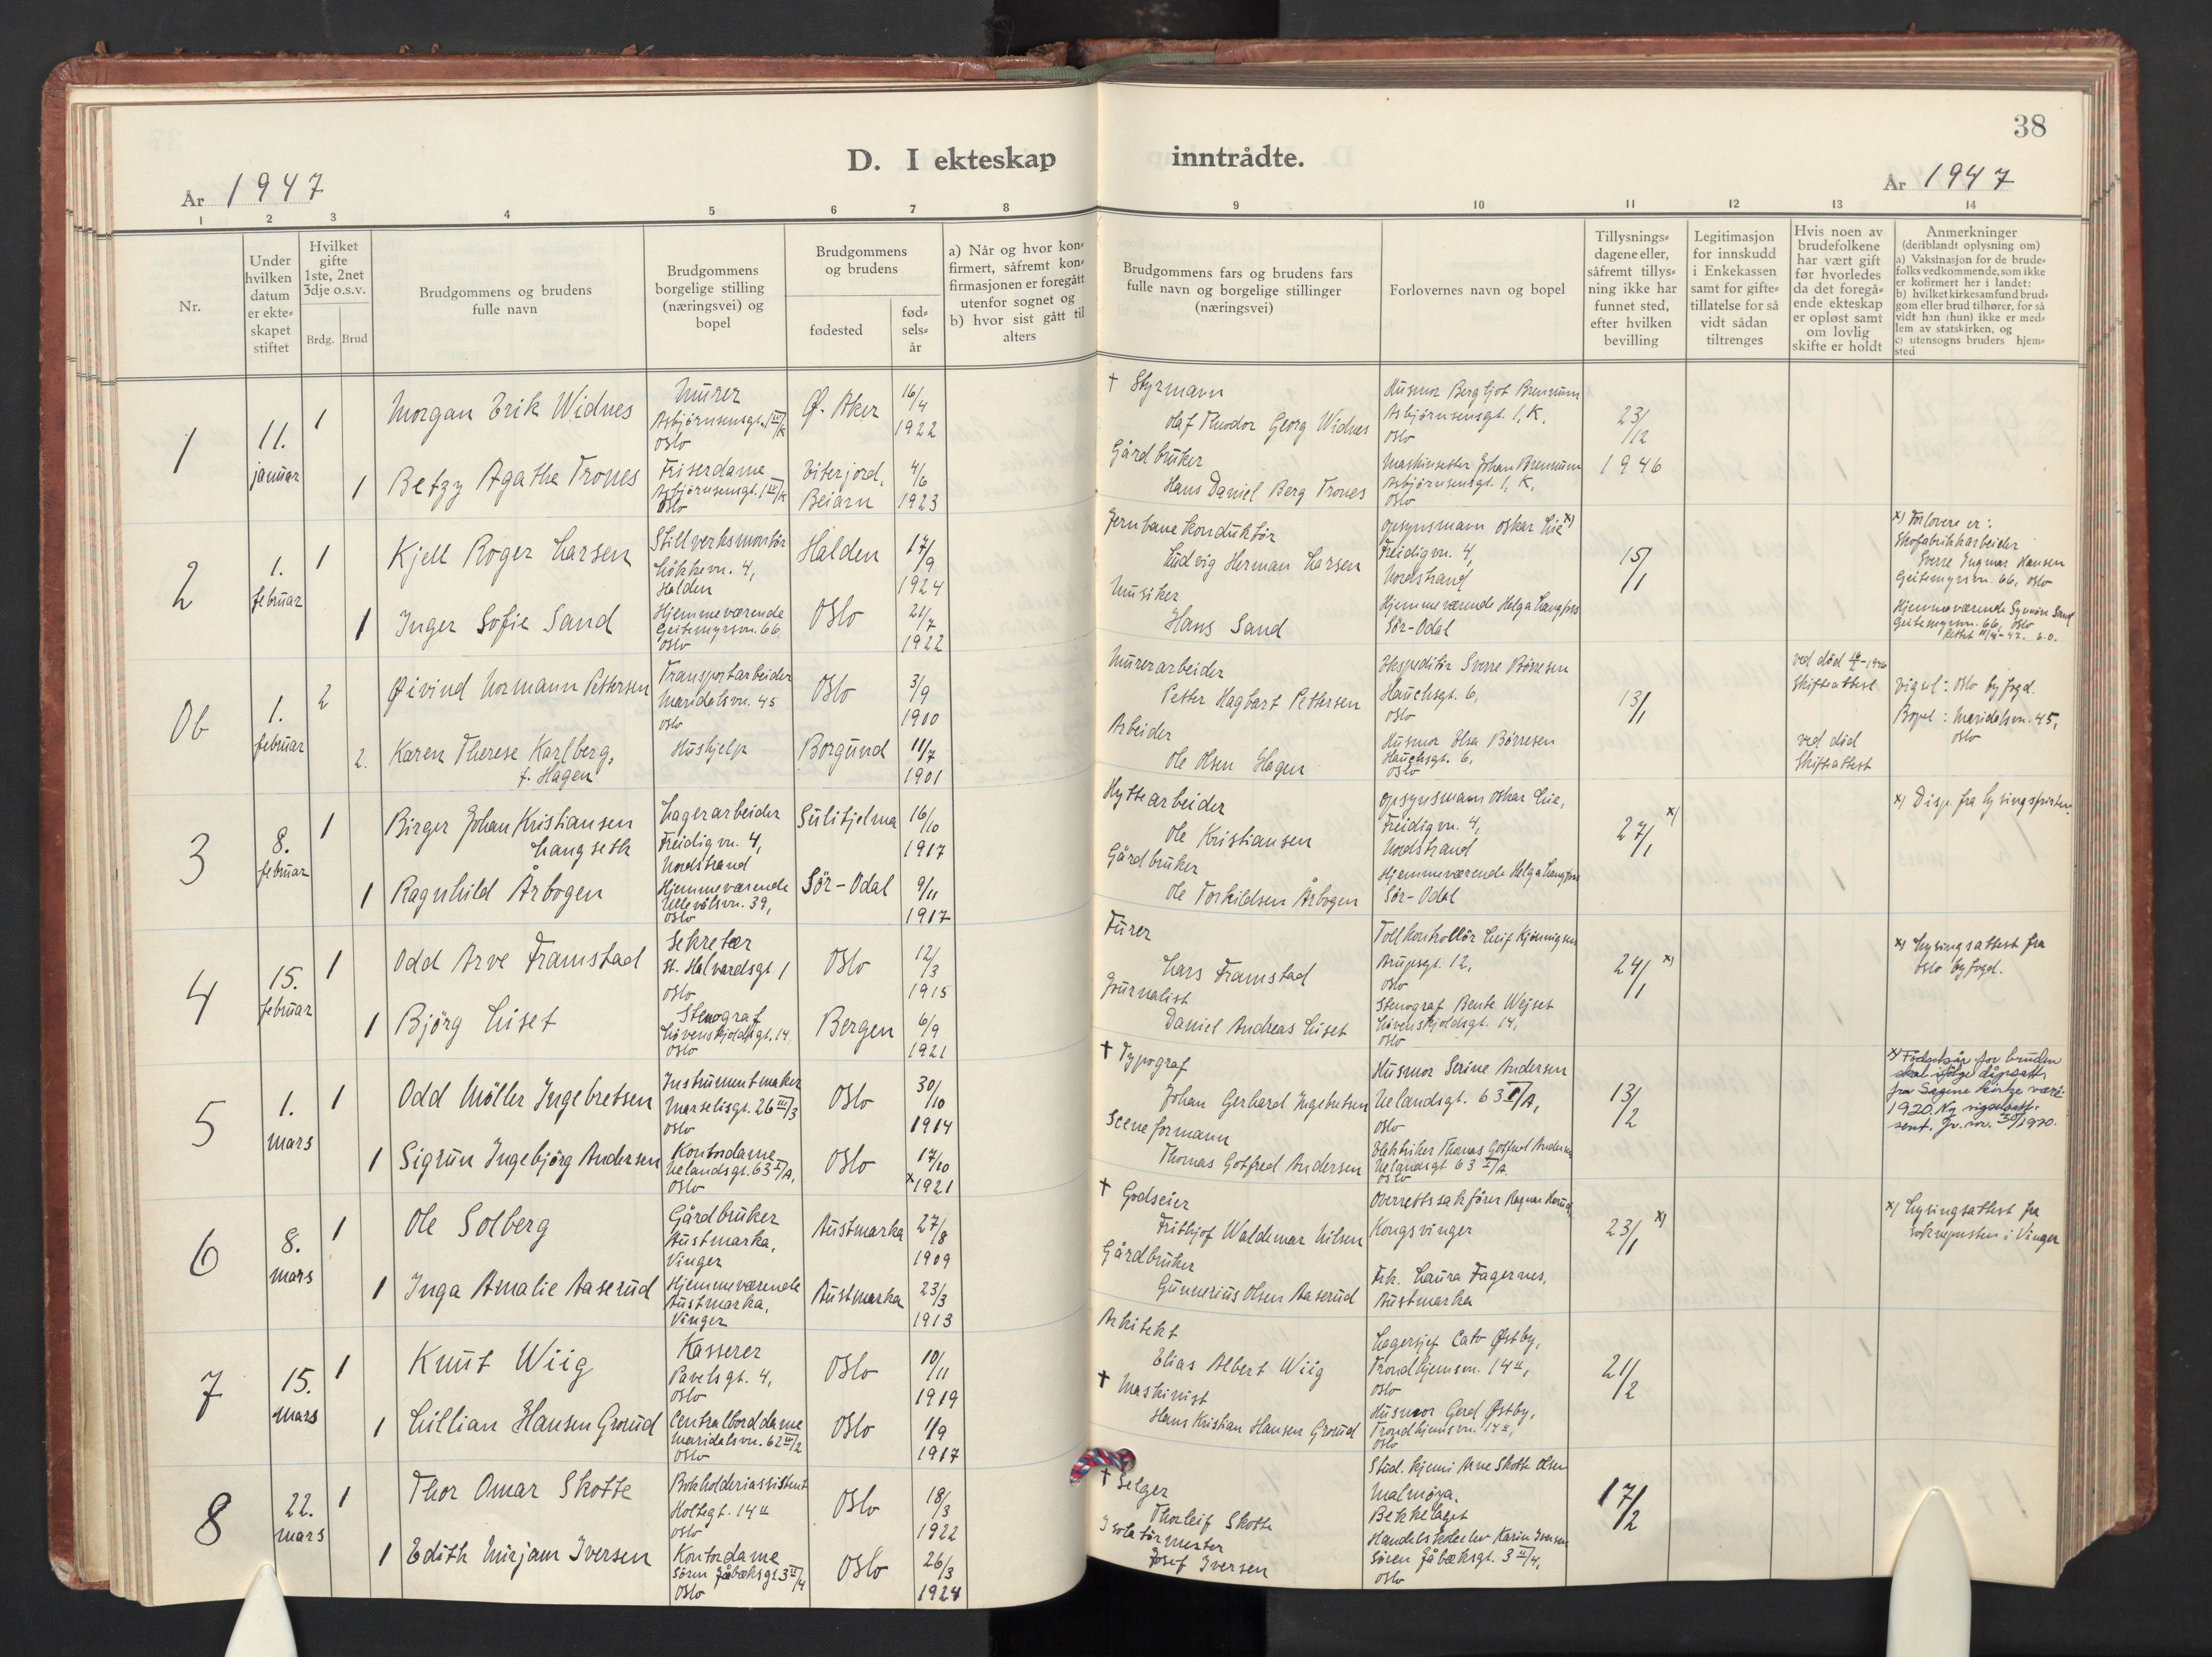 38
D. I ekteskap inntrådte.
År 1947
År 1947
1 2 3 4 5 6 7 8 9 10 11 12 13 14
Nr.
Under hvilken datum er ekteskapet stiftet
Hvilket gifte 1ste, 2net 3dje o.s.v.
Brdg. Brud
Brudgommens og brudens fulle navn
Brudgommens borgelige stilling (næringsvei) og bopel
Brudgommens og brudens
fødested
fødselsår
a) Når og hvor konfirmert, såfremt konfirmasjonen er foregått utenfor sognet og
b) hvor sist gått til alters
Brudgommens fars og brudens fars fulle navn og borgelige stillinger (næringsvei)
Forlovernes navn og bopel
Tillysningsdagene eller, såfremt tillysning ikke har funnet sted, efter hvilken bevilling
Legitimasjon for innskudd i Enkekassen samt for giftetillatelse for så vidt sådan tiltrenges
Hvis noen av brudefolkene har vært gift før hvorledes da det foregående ekteskap er opløst samt om lovlig skifte er holdt
Anmerkninger
(deriblandt oplysning om)
a) Vaksinasjon for de brudefolks vedkommende, som ikke er kofirmert her i landet:
b) hvilket kirkesamfund brudgom eller brud tilhører, for så vidt han (hun) ikke er medlem av statskirken, og
c) utensogns bruders hjemsted
1
11. januar
1
Morgan Erik Widnes
Murer
Asbjørnsensgt. 1 III/K
Oslo
Ø. Aker
16/4
1922
† Styrmann
Olaf Theodor Georg Widnes
Husmor Bergljot Brennum
Asbjørnsensgt. 1, K.
Oslo
23/12
1946
1
Betzy Agathe Trones
Friserdame
Asbjørnsensgt. 1 III/K
Oslo
Eiterjord,
Beiarn
4/6
1923
Gårdbruker
Hans Daniel Berg Trones
Maskinsetter Johan Brennum
Asbjørnsensgt. 1, K.
Oslo
2
1. februar
1
Kjell Roger Larsen
Stillverksmontör
Løkkevn. 4,
Halden
Halden
17/9
1924
Jernbanekonduktør
Ludvig Herman Larsen
Opsynsmann Oskar Lie x)
Freidigvn. 4,
Nordstrand
15/1
x) Forlovere er:
Skofabrikkarbeider
Sverre Ingmar Hansen
Geitemyrsvn. 66, Oslo
1
Inger Sofie Sand
Hjemmeværende
Geitemyrsvn. 66
Oslo
Oslo
21/7
1922
Musiker
Hans Sand
Hjemmeværende Helga Langfoss
Sør-Odal
Hjemmeværende Synnøve Sand
Geitemyrsvn. 66, Oslo
0b
1. februar
2
Øivind Normann Pettersen
Transportarbeider
Maridalsvn. 45
Oslo
Oslo
3/9
1900
Murerarbeider
Petter Hagbart Pettersen
Ekspeditör Sverre Børresen
Hauchsgt. 6,
Oslo
13/1
ved død
Skifteattest
Vigsel: Oslo byfogd.
Bopel: Maridalsvn. 45,
Oslo
2.
Karen Therese Karlberg,
f. Hagen
Hushjelp
Borgund
11/7
1901
Arbeider
Ole Olsen Hagen
Husmor Elsa Børresen
Hauchsgt. 6,
Oslo
ved død
Skifteattest
3
8. februar
1
Birger Johan Kristiansen
Langseth
Lagerarbeider
Freidigvn. 4,
Nordstrand
Sulitjelma
16/10
1917
Hyttearbeider
Ole Kristiansen
Opsynsmann Oskar Lie,
Freidigvn. 4,
Nordstrand
27/1 x)
x) Disp. fra lysingsfristen.
1
Ragnhild Årbogen
Hjemmeværende
Ullevålsvn. 39,
Oslo
Sör-Odal
9/11
1917
Gårdbruker
Ole Torkildsen Årbogen
Hjemmeværende Helga Langfoss
Sör-Odal
4
15. februar
1
Odd Arve Framstad
Sekretær
St. Halvardsgt 1
Oslo
Oslo
12/3
1915
Furer
Lars Framstad
Tollkontrollör Leif Kjønnigsen
Arupsgt. 12,
Oslo
24/1 x)
x) Lysingsattest fra
Oslo byfogd.
1
Björg Liset
Stenograf
Løvenskjoldsgt. 14
Oslo
Bergen
6/9
1921
Journalist
Daniel Andreas Liset
Stenograf Bente Wejset
Løvenskjoldsgt. 14,
Oslo
5
1. mars
1
Odd Møller Ingebretsen
Instrumentmaker
Marselisgt. 26 III/3
Oslo
Oslo
30/10
1914
† Typograf
Johan Gerhard Ingebretsen
Husmor Serine Andersen
Uelandsgt. 63 I/A,
Oslo
13/2
x) Fødselsår for bruden
skal ifølge dåpsatt.
fra Sagene kirke være:
1920. Ny vigselsatt.
sent.
1
Sigrun Ingebjörg Andersen
Kontordame
Uelandsgt. 63 I/A,
Oslo
Oslo
17/10
x 1921
Sceneformann
Thomas Gotfred Andersen
Elektriker Thomas Gotfred Andersen
Uelandsgt 63 I/A
Oslo
6
8. mars
1
Ole Solberg
Gårdbruker
Austmarka,
Vinger
Austmarka
27/8
1909
† Godseier
Fritjof Waldemar Nilsen
Overrettssakfører Ragnar Kerud,
Kongsvinger
23/1 x)
x) Lysingsattest fra
sokneprsten i Vinger
1
Inga Amalie Aaserud
Hjemmeværende
Austmarka,
Vinger
Austmarka
23/3
1913
Gårdbruker
Gunnerius Olsen Aaserud
Frk. Laura Fagernes,
Austmarka
7
15. mars
1
Knut Wiig
Kasserer
Pavelsgt. 4,
Oslo
Oslo
10/11
1919
Arkitekt
Elias Albert Wiig
Lagersjef Cato Østby,
Trondhjemsvn. 14 II,
Oslo
21/2
1
Lillian Hansen Grorud
Centralborddame
Maridalsvn. 62 III/2
Oslo
Oslo
1/9
1917
† Maskinist
Hans Kristian Hansen Grorud
Husmor Gerd Østby,
Trondhjemsvn. 14 II,
Oslo
8
22. mars
1
Thor Omar Skotte
Bokholderiassistent
Holtegt. 14 II
Oslo
Oslo
18/3
1922
† Selger
Thorleif Skotte
Stud. kjemi Arne Skotte Olsen
Malmøya,
Bekkelaget
17/2
1
Edith Mirjam Iversen
Kontordame
Sören Jåbæksgt 3 II/4
Oslo
Oslo
26/3
1924
Isolatörmester
Josef Iversen
Handelsskoleelev Karin Iversen
Sören Jåbæksgt. 3 II/4,
Oslo